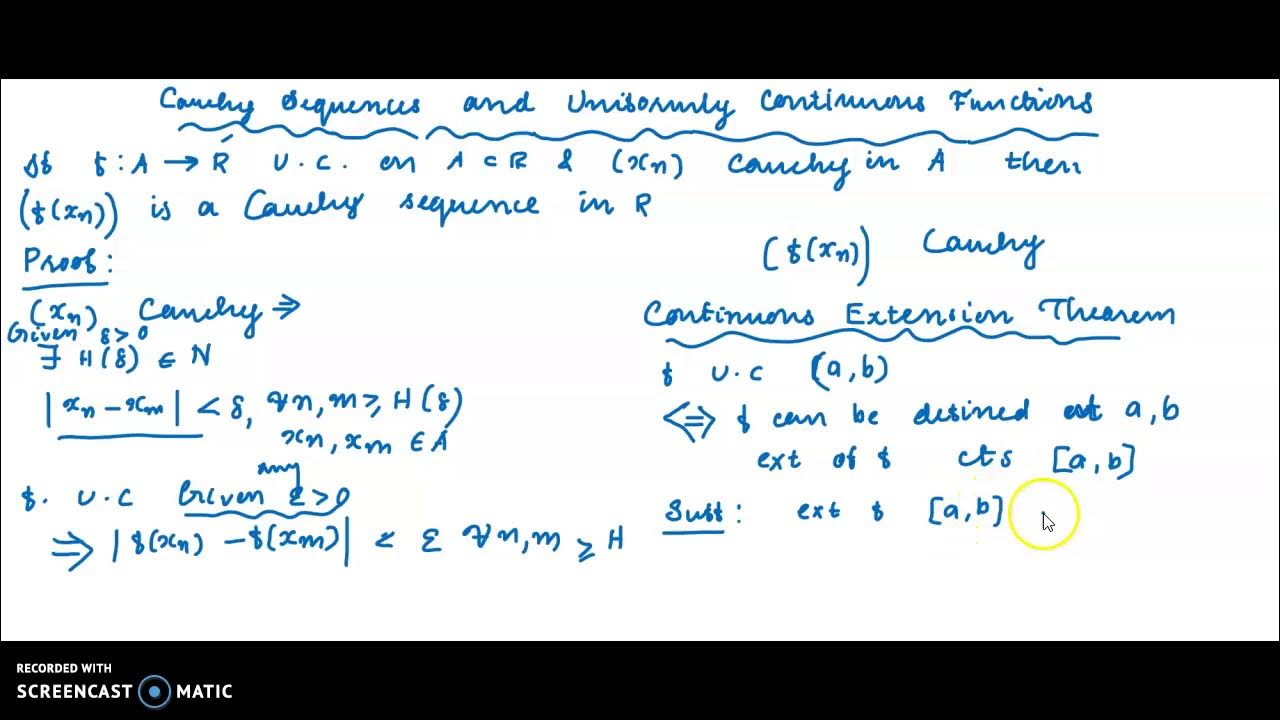 Cauchy Sequences and Uniformly Continuous Functions
If f : A → R U.C. on A ⊂ R & (xn) Cauchy in A then
(f(xn)) is a Cauchy sequence in R
Proof:
(xn) Cauchy ⇒
Given δ > 0
∃ H(δ) ∈ N
|xn - xm| < δ, ∀ n, m ≥ H(δ)
xn, xm ∈ A
any
f. U.C Given ε > 0
⇒ |f(xn) - f(xm)| < ε ∀ n, m ≥ H
(f(xn)) Cauchy
Continuous Extension Theorem
f U.C (a, b)
⇔ f can be defined at a, b
ext of f cts [a, b]
Suff: ext f [a, b]
RECORDED WITH
SCREENCAST MATIC